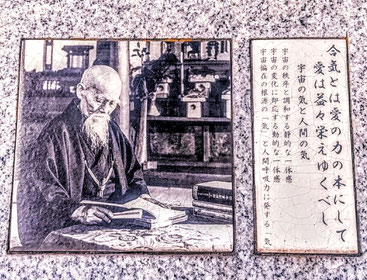 合氣とは愛の力の本にして
愛は益々栄えゆくべし
宇宙の気と人間の気
宇宙の秩序と調和する静的な一体感
宇宙の変化に即応する動的な一体感
宇宙偏在の根源の「気」と人間呼吸力に発する「気」